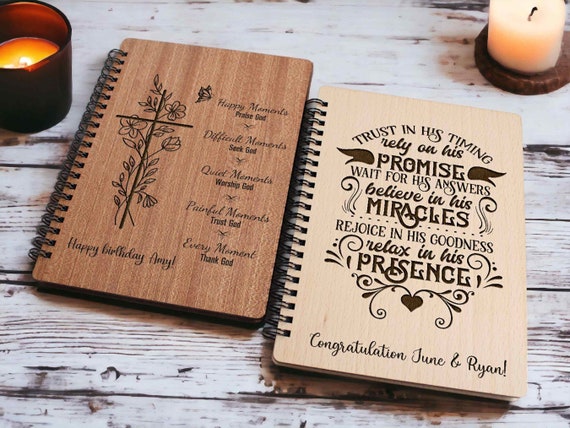 Happy Moments
Praise God
Difficult Moments
Seek God
Quiet Moments
Worship God
Painful Moments
Trust God
Every Moment
Thank God
Happy birthday Amy!
TRUST IN HIS TIMING
rely on his
PROMISE
WAIT FOR HIS ANSWERS
believe in his
MIRACLES
REJOICE IN HIS GOODNESS
relax in his
PRESENCE
Congratulation June & Ryan!